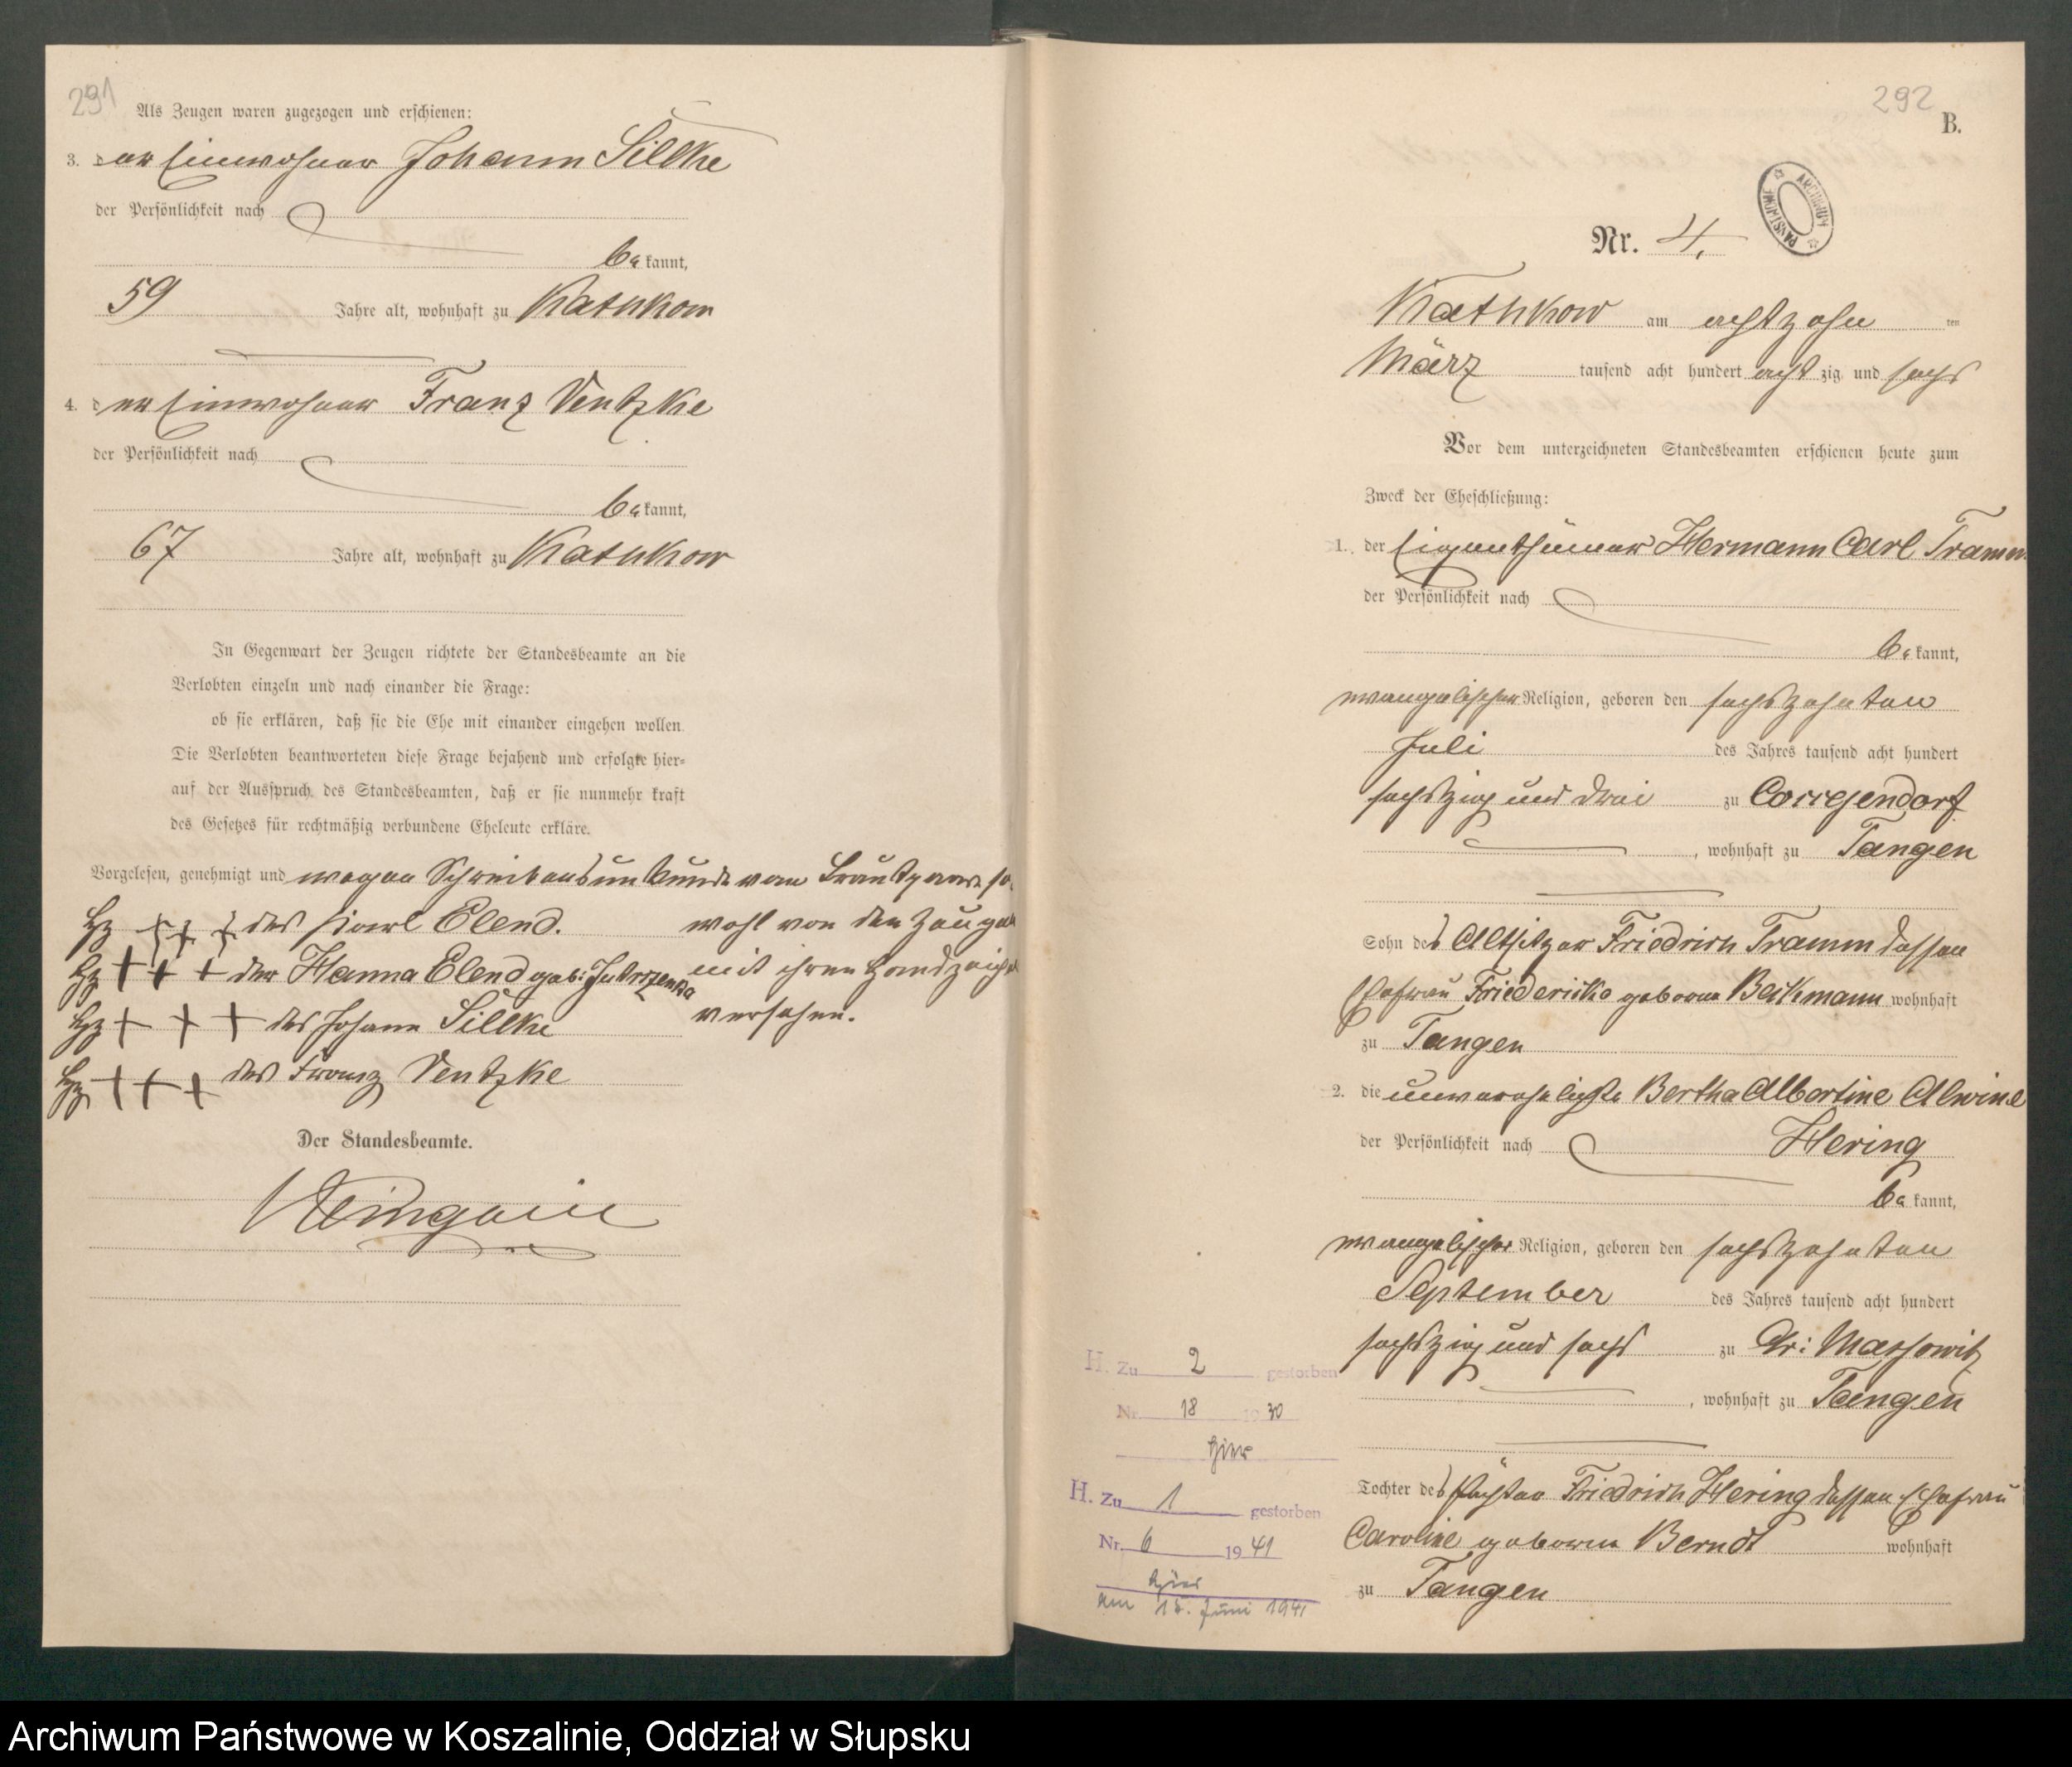 291
Als Zeugen waren zugezogen und erschienen:
3. der Einwohner Johann Sillke
der Persönlichkeit nach
be kannt,
59 Jahre alt, wohnhaft zu Kathkow
4. der Einwohner Franz Ventzke
der Persönlichkeit nach
be kannt,
67 Jahre alt, wohnhaft zu Kathkow
In Gegenwart der Zeugen richtete der Standesbeamte an die
Verlobten einzeln und nach einander die Frage:
ob sie erklären, daß sie die Ehe mit einander eingehen wollen.
Die Verlobten beantworteten diese Frage bejahend und erfolgte hier-
auf der Ausspruch des Standesbeamten, daß er sie nunmehr kraft
des Gesetzes für rechtmäßig verbundene Eheleute erkläre.
Vorgelesen, genehmigt und wegen Schreibensunkunde vom Brautpaare so
wohl von den Zeugen
mit ihren Handzeichen
versehen.
Hz +++ des Karl Elend.
Hz +++ der Hanna Elend geb:
Hz +++ des Johann Sillke
Hz +++ des Franz Ventzke
Der Standesbeamte.
292
B.
ARCHIWUM PAŃSTWOWE
Nr. 4.
Kathkow am achtzehn ten
März tausend acht hundert acht zig und sechs
Vor dem unterzeichneten Standesbeamten erschienen heute zum
Zweck der Eheschließung:
1. der Eigenthümer Hermann Carl Tramm
der Persönlichkeit nach
be kannt,
evangelischer Religion, geboren den sechszehnten
Juli des Jahres tausend acht hundert
sechszig und drei zu Corregendorf
, wohnhaft zu Tangen
Sohn des Altsitzer Friedrich Tramm dessen
Ehefrau Friedericke geborne Beckmann wohnhaft
zu Tangen
2. die unverehelichte Bertha Albertine Alwine
der Persönlichkeit nach Hering
be kannt,
evangelischer Religion, geboren den sechszehnten
September des Jahres tausend acht hundert
sechszig und sechs zu Gr: Massowitz
, wohnhaft zu Tangen
Tochter des Friedrich Hering dessen Ehefrau
Caroline geborne Berndt wohnhaft
zu Tangen
H. Zu 2 gestorben
Nr. 18 19 30
hier
H. Zu 1 gestorben
Nr. 6 19 41
hier
am 15. Juni 1941
Archiwum Państwowe w Koszalinie, Oddział w Słupsku